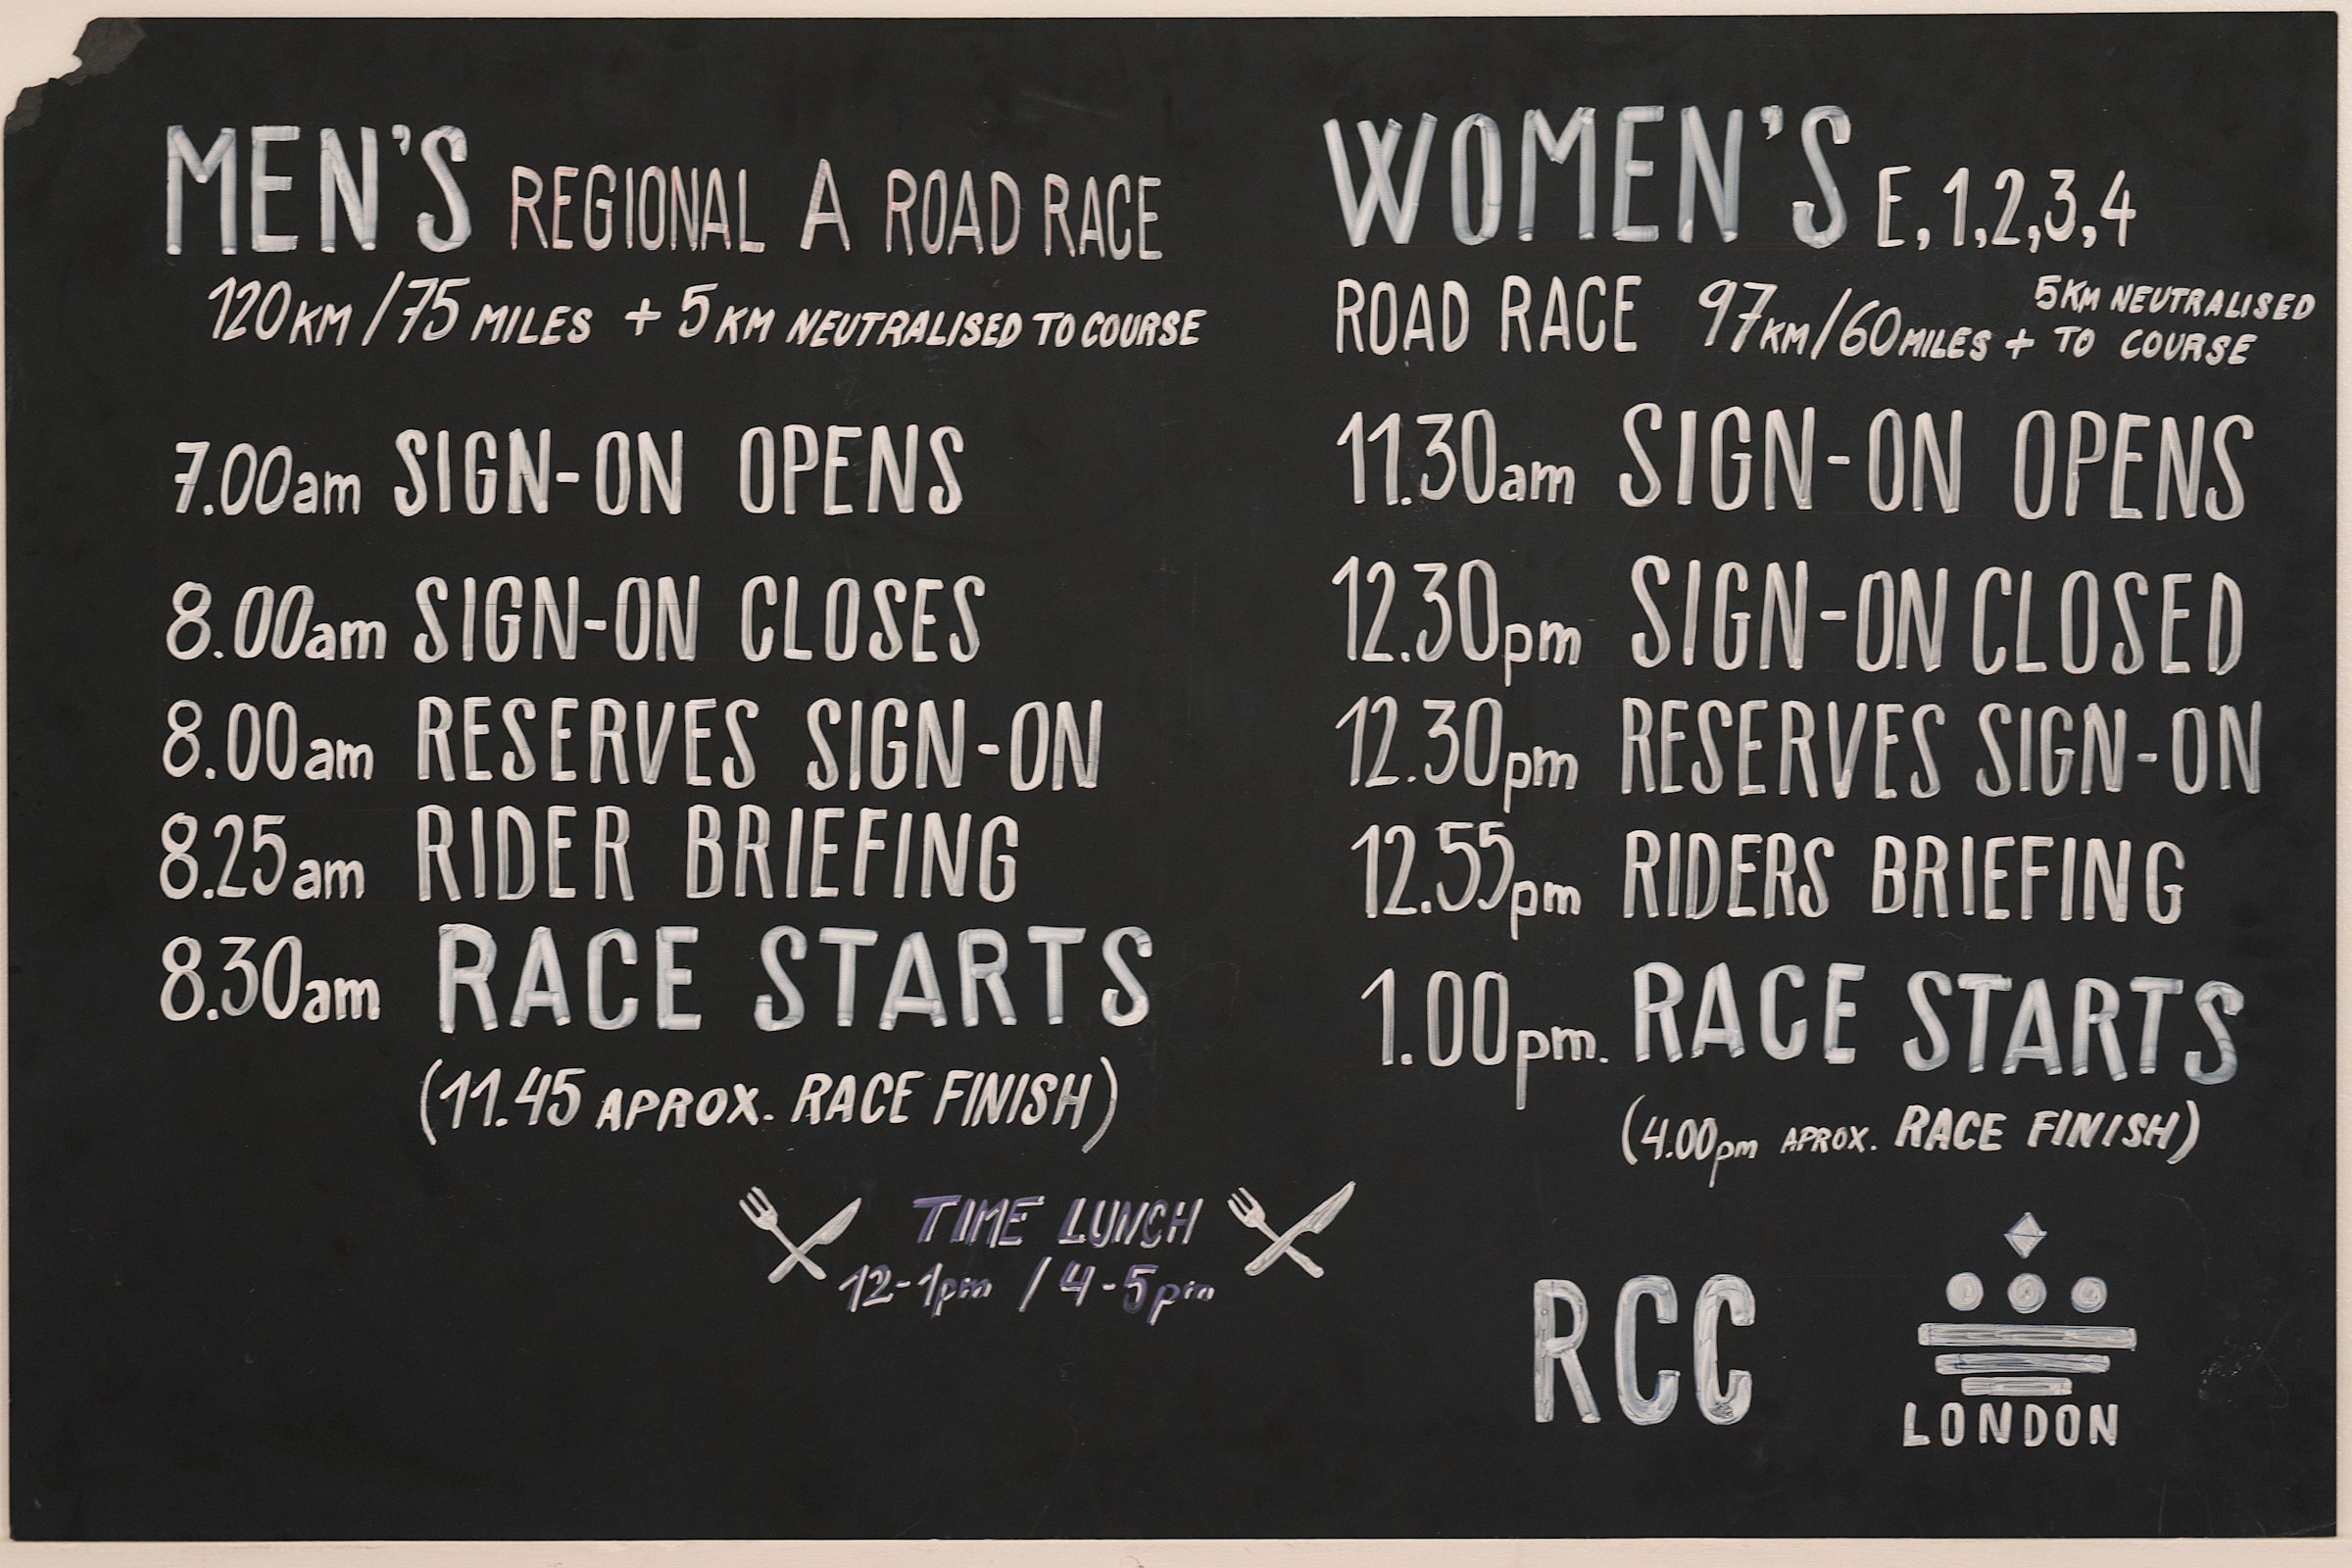 MEN'S REGIONAL A ROAD RACE
120KM/75 MILES + 5KM NEUTRALISED TO COURSE
7.00am SIGN-ON OPENS
8.00am SIGN-ON CLOSES
8.00am RESERVES SIGN-ON
8.25am RIDER BRIEFING
8.30am RACE STARTS
(11.45 APROX. RACE FINISH)
WOMEN'S E,1,2,3,4
ROAD RACE 97KM/60MILES + 5KM NEUTRALISED
TO COURSE
11.30am SIGN-ON OPENS
12.30pm SIGN-ON CLOSED
12.30pm RESERVES SIGN-ON
12.55pm RIDERS BRIEFING
1.00pm. RACE STARTS
(4.00pm APROX. RACE FINISH)
TIME LUNCH
12-1pm / 4-5pm
RCC
LONDON